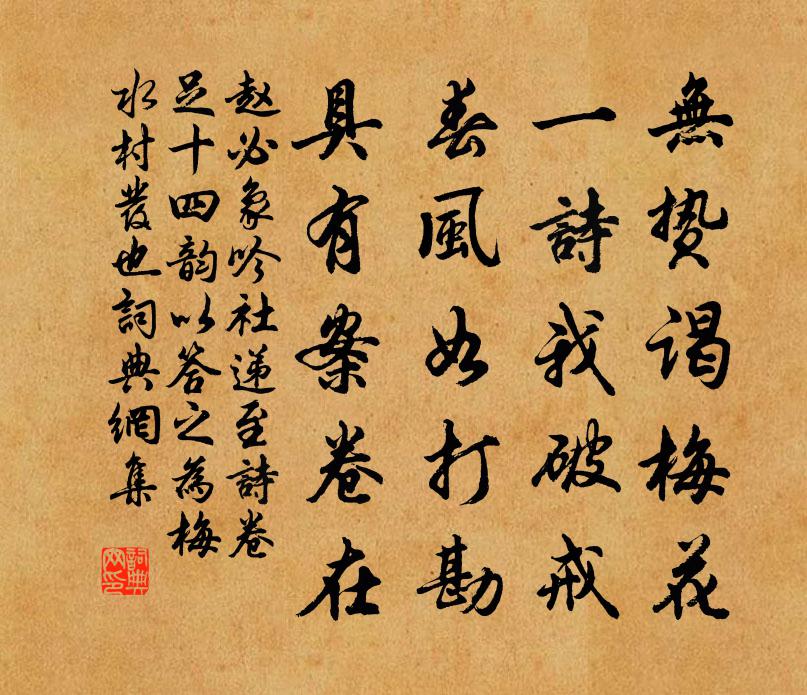 無贄谒梅花
一詩我破戒
春風如打勘
具有案卷在
赵必象吟社递至詩卷
足十四韵以答之為梅
水村發也詞典網集
詞典
网印